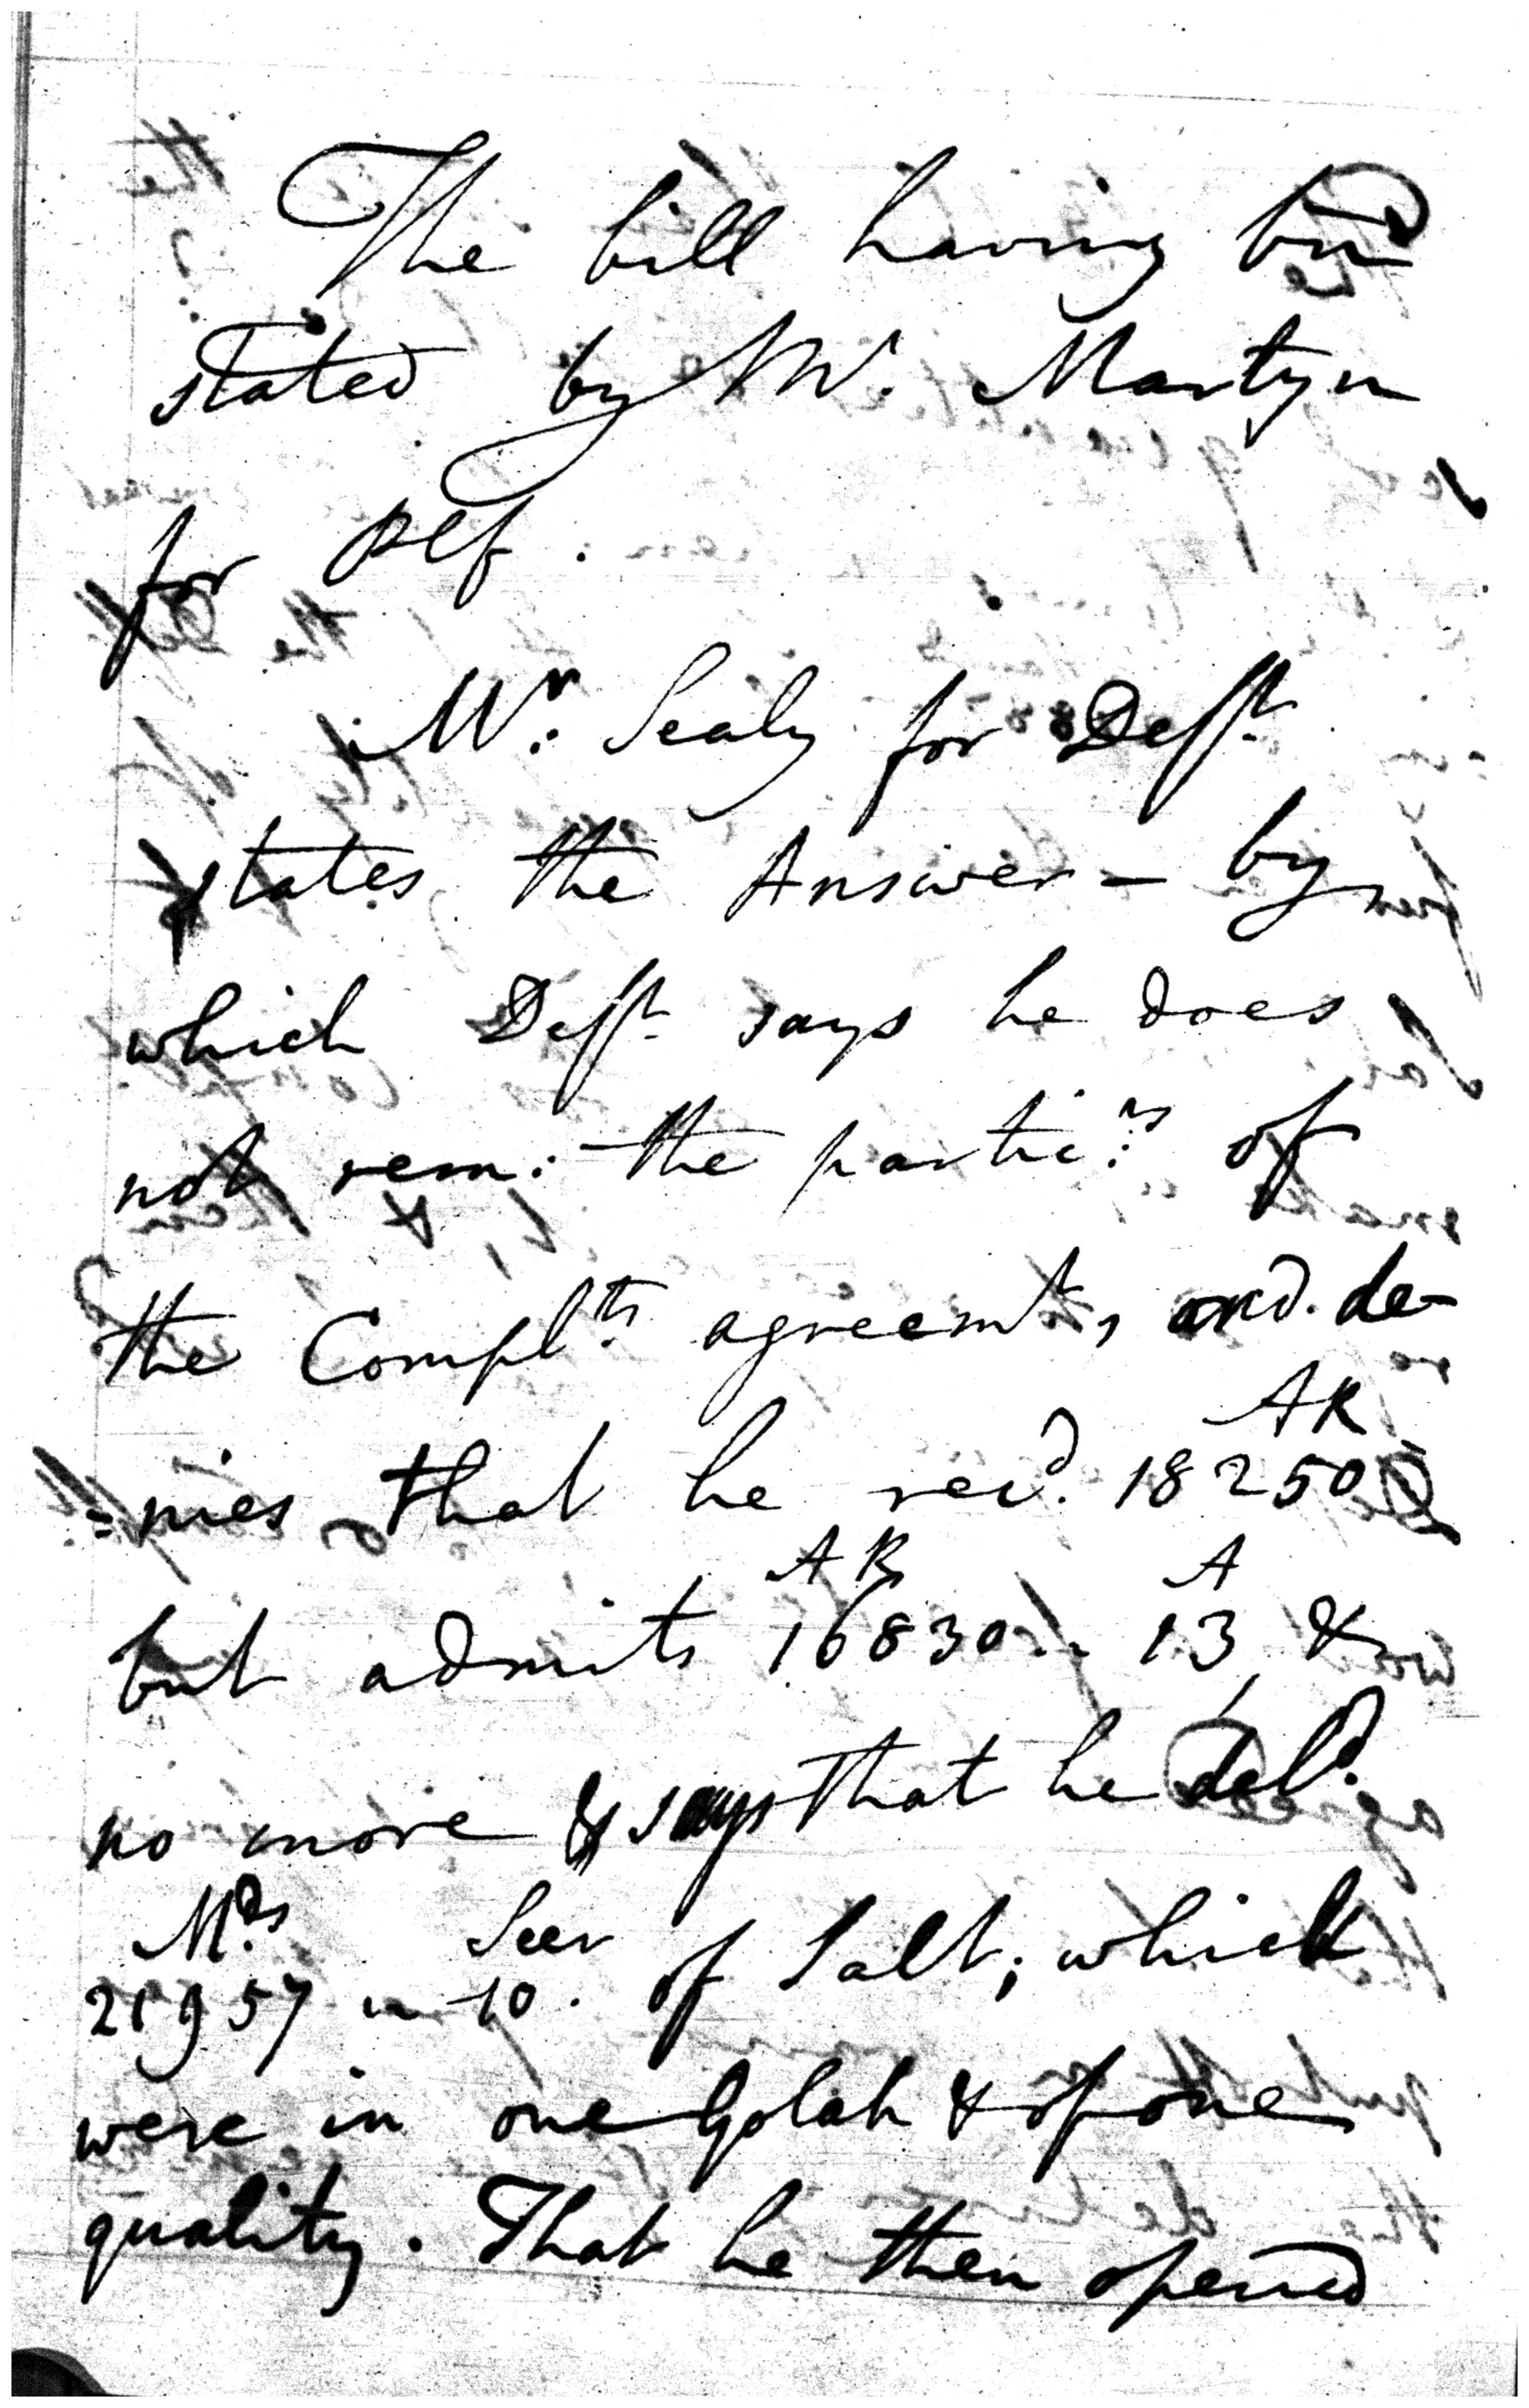 The bill having bin
stated by Mr. Martyn
for Plf.
Mr. Sealy for Defft
states the Answer - by
which Defft says he does
not rem: the partic:rs of
the Complts agreemts, and de-
AR
=nies that he recd. 18250
AR A
but admits 16830 .. 13, &
no more & says that he deld.
Mds Seer
21957 .. 10. of Salt; which
were in one Golah & of one
quality. That he then opened